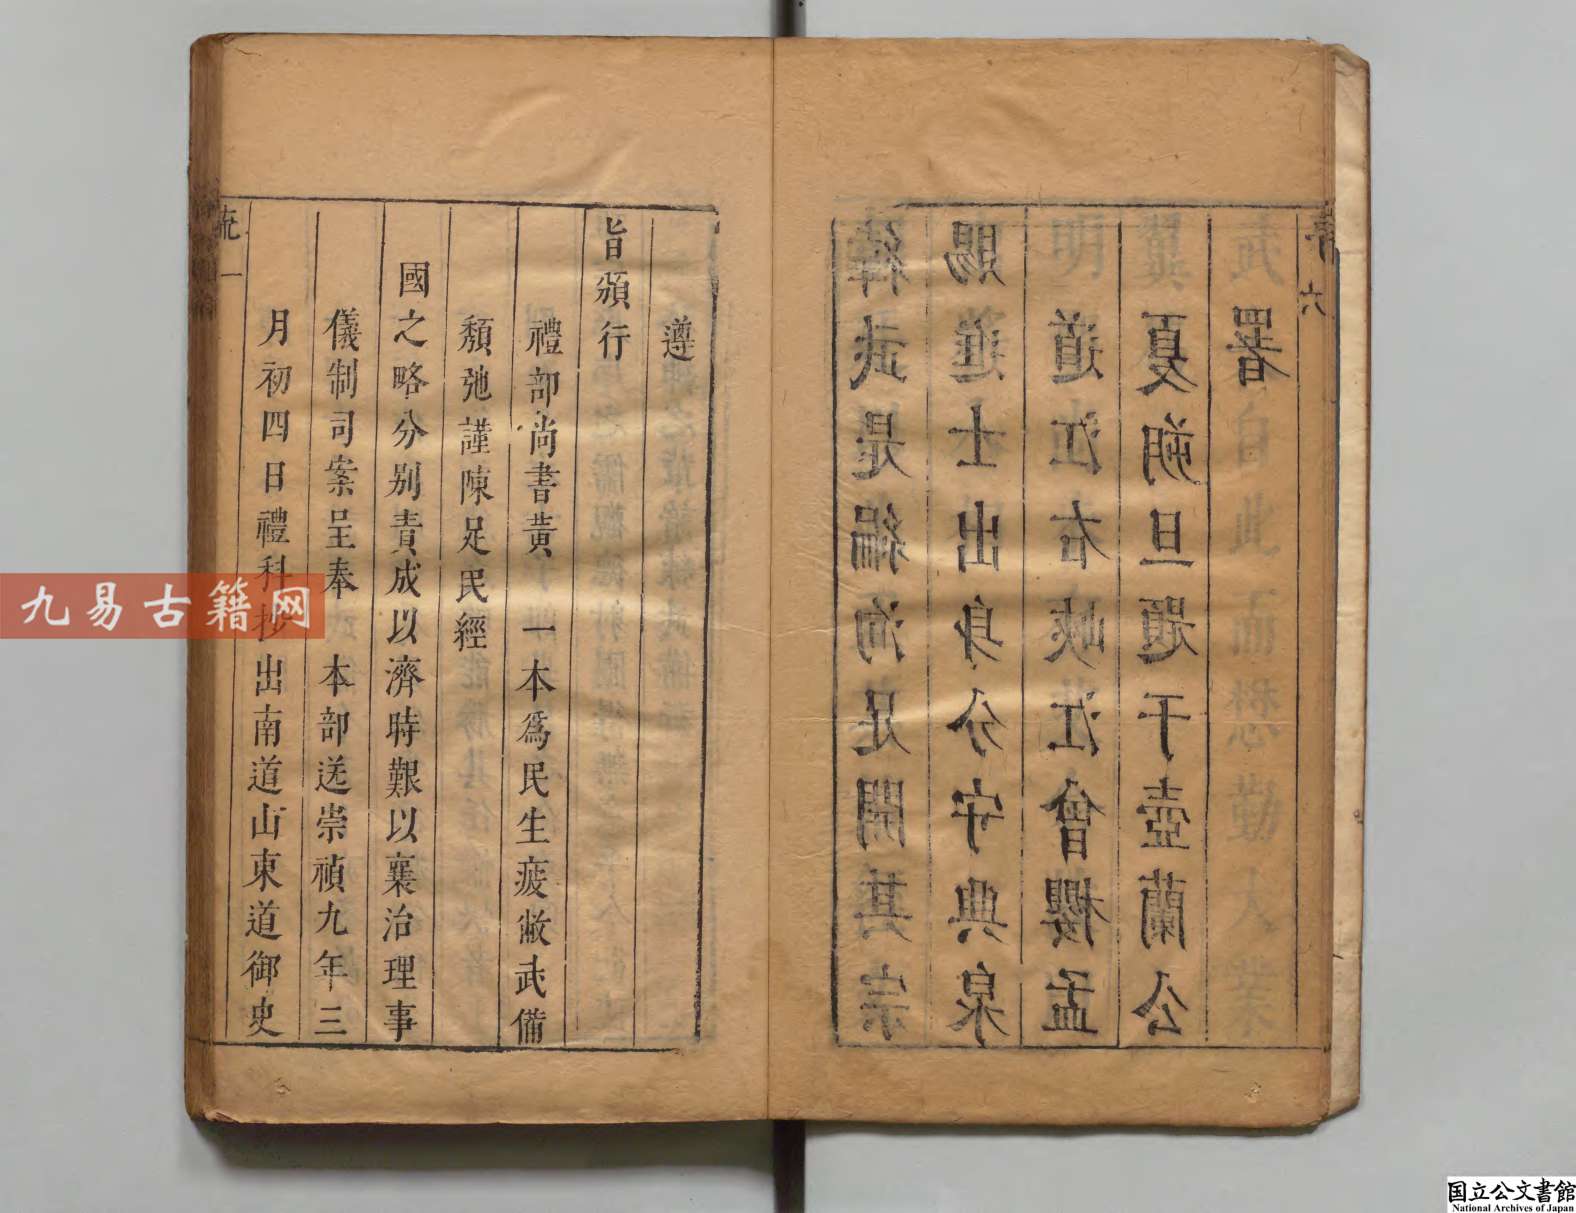 緯武是編洵足開其宗
賜進士出身分守興泉
道江右峽江曾櫻孟
夏朔旦題于壺蘭公
署
六
遵
旨頒行
禮部尚書黃 一本爲民生疲敝武備
頹弛謹陳足民經
國之略分别責成以濟時艱以襄治理事
儀制司案呈奉 本部送崇禎九年三
月初四日禮科抄出南道山東道御史
疏 一
九易古籍网
国立公文書館
National Archives of Japan